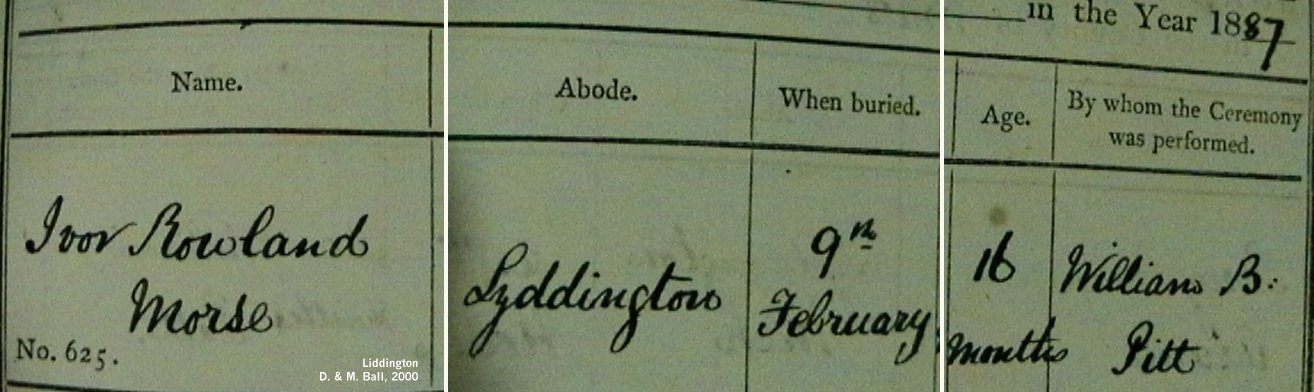 in the Year 1887
Name.
Abode.
When buried.
Age.
By whom the Ceremony
was performed.
Ivor Rowland
Morse
No. 625.
Lyddington
9th
February
16
months
William B.
Pitt
Liddington
D. & M. Ball, 2000